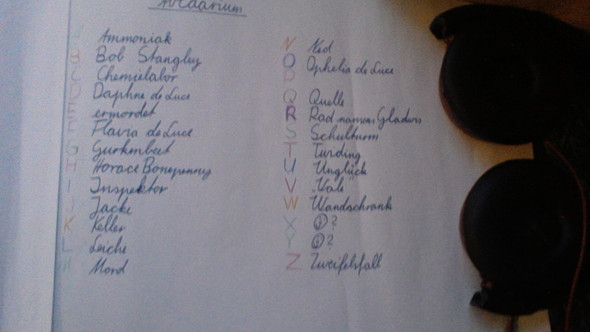 Abcdarium
A Ammoniak
B Bob Stangley
C Chemielabor
D Daphne de Luce
E ermordet
F Flavia de Luce
G Gurkenbeet
H Horace Bonepenny
I Inspektor
J Jacke
K Keller
L Leiche
M Mord
N Ned
O Ophelia de Luce
P
Q Quelle
R Rad namens Gladys
S Schulturm
T Turding
U Unglück
V „Vale"
W Wandschrank
X ?
Y ?
Z Zweifelsfall